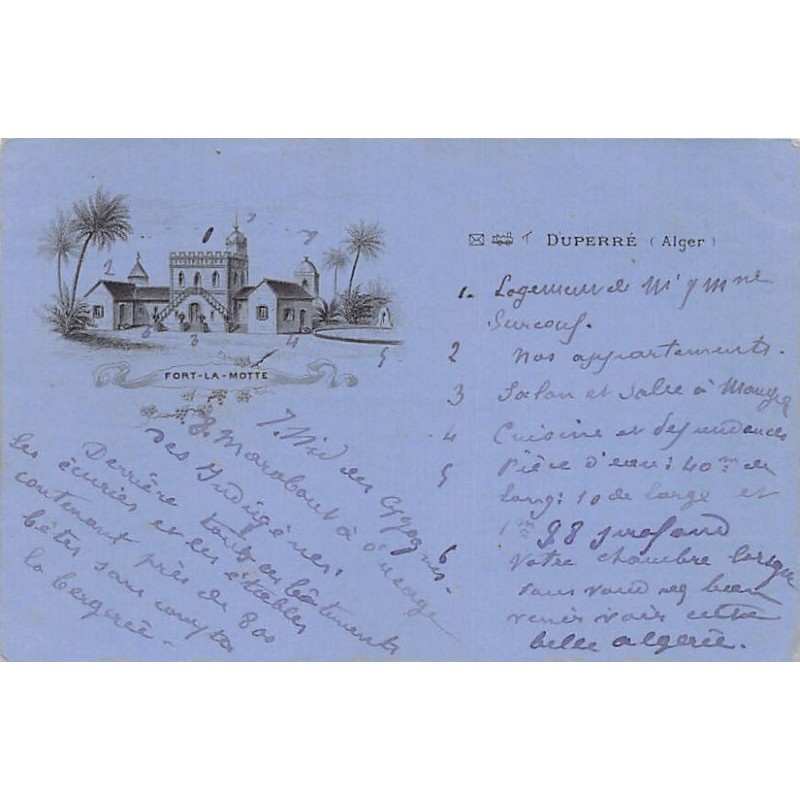 DUPERRÉ (Alger)
FORT-LA-MOTTE
1 2 3 4 5 6 7 8
1. Logement de Mr et Mme
Surcouf.
2 Nos appartements.
3 Salon et Salle à Manger
4 Cuisine et dépendances
5 Pièce d'eau: 40m de
long: 10 de large et
1m 98 profond
6 Votre chambre lorsque
vous voudrez bien
venir voir cette
belle algérie.
7. Nid des Cigognes.
8. Marabout à l'usage
des Indigènes.
Derrière tous ces bâtiments
les écuries et les étables
contenant près de 800
bêtes sans compter
la bergerie.